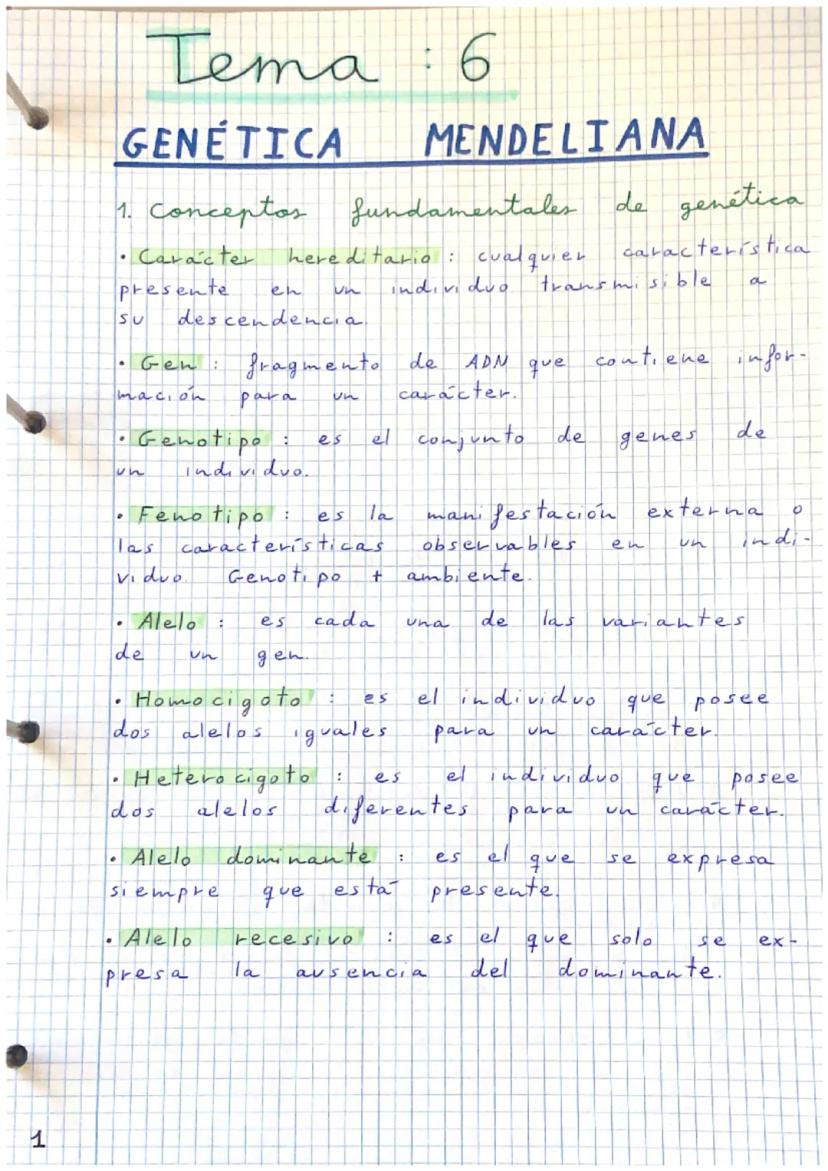 Tema : 6
GENÉTICA MENDELIANA
1. Conceptos fundamentales de genética
• Carácter hereditario : cualquier característica
presente en un individuo transmisible a
su descendencia.
• Gen : fragmento de ADN que contiene infor-
mación para un carácter.
• Genotipo : es el conjunto de genes de
un individuo.
• Fenotipo : es la manifestación externa o
las características observables en un indi-
viduo. Genotipo + ambiente.
• Alelo : es cada una de las variantes
de un gen.
• Homocigoto : es el individuo que posee
dos alelos iguales para un carácter.
• Heterocigoto : es el individuo que posee
dos alelos diferentes para un carácter.
• Alelo dominante : es el que se expresa
siempre que está presente.
• Alelo recesivo : es el que solo se ex-
presa la ausencia del dominante.
1